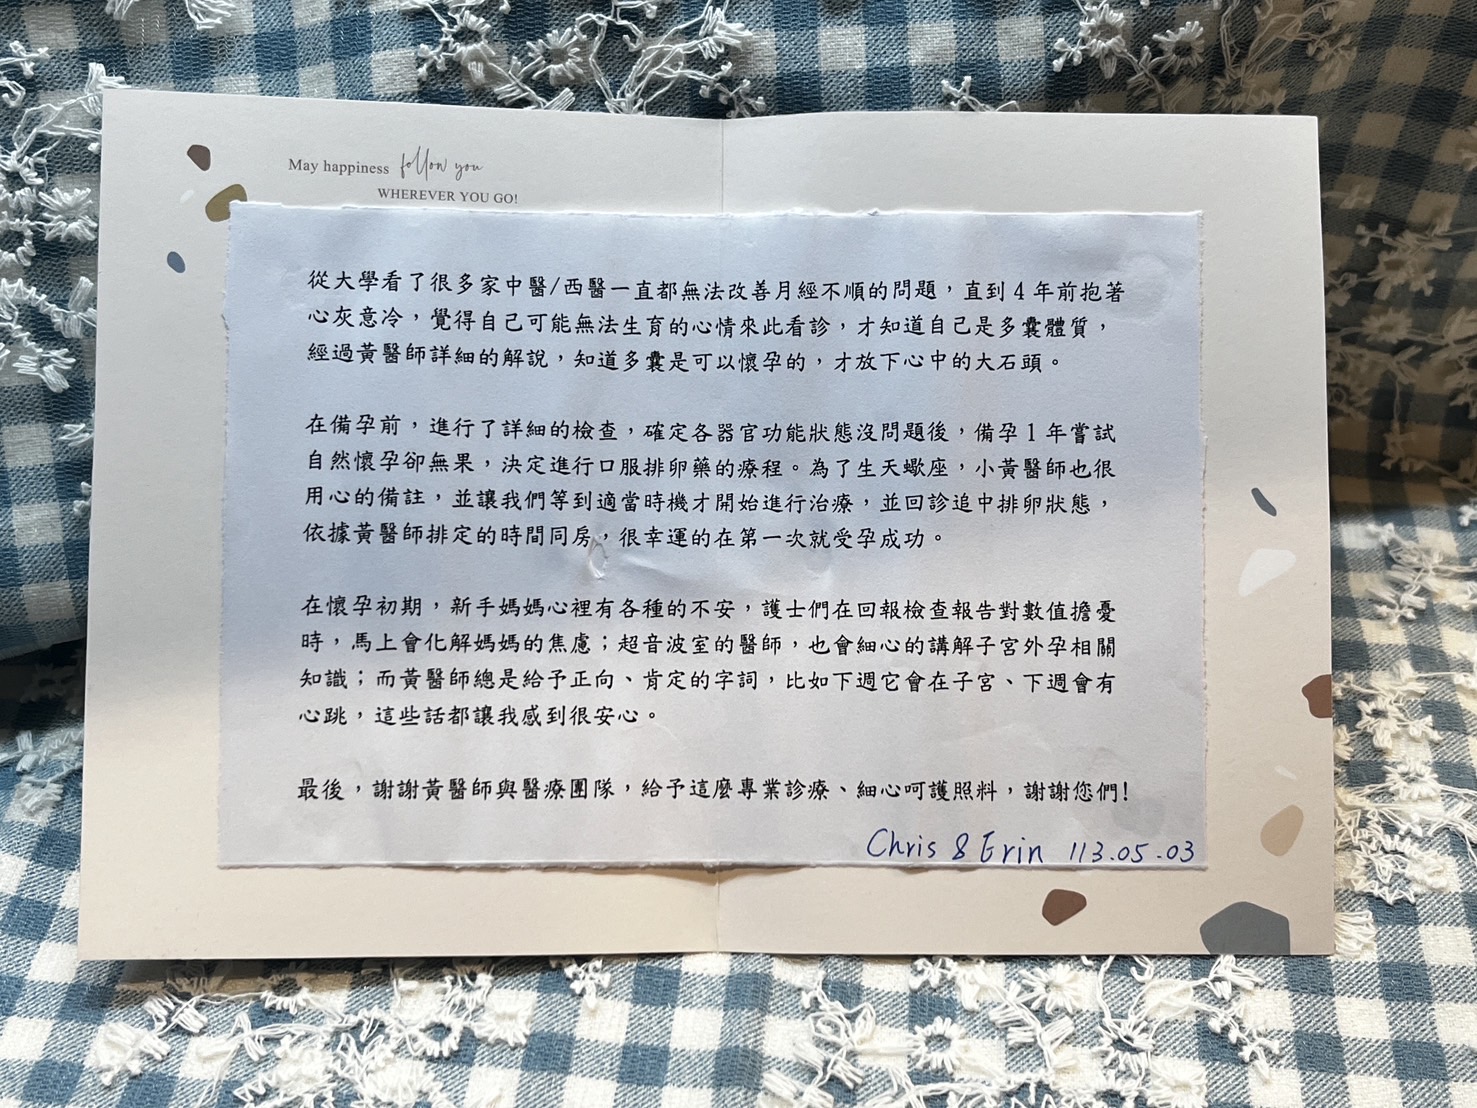 May happiness follow you
WHEREVER YOU GO!
從大學看了很多家中醫/西醫一直都無法改善月經不順的問題，直到 4 年前抱著
心灰意冷，覺得自己可能無法生育的心情來此看診，才知道自己是多囊體質，
經過黃醫師詳細的解說，知道多囊是可以懷孕的，才放下心中的大石頭。
在備孕前，進行了詳細的檢查，確定各器官功能狀態沒問題後，備孕 1 年嘗試
自然懷孕卻無果，決定進行口服排卵藥的療程。為了生天蠍座，小黃醫師也很
用心的備註，並讓我們等到適當時機才開始進行治療，並回診追中排卵狀態，
依據黃醫師排定的時間同房，很幸運的在第一次就受孕成功。
在懷孕初期，新手媽媽心裡有各種的不安，護士們在回報檢查報告對數值擔憂
時，馬上會化解媽媽的焦慮；超音波室的醫師，也會細心的講解子宮外孕相關
知識；而黃醫師總是給予正向、肯定的字詞，比如下週它會在子宮、下週會有
心跳，這些話都讓我感到很安心。
最後，謝謝黃醫師與醫療團隊，給予這麼專業診療、細心呵護照料，謝謝您們!
Chris & Erin 113.05.03